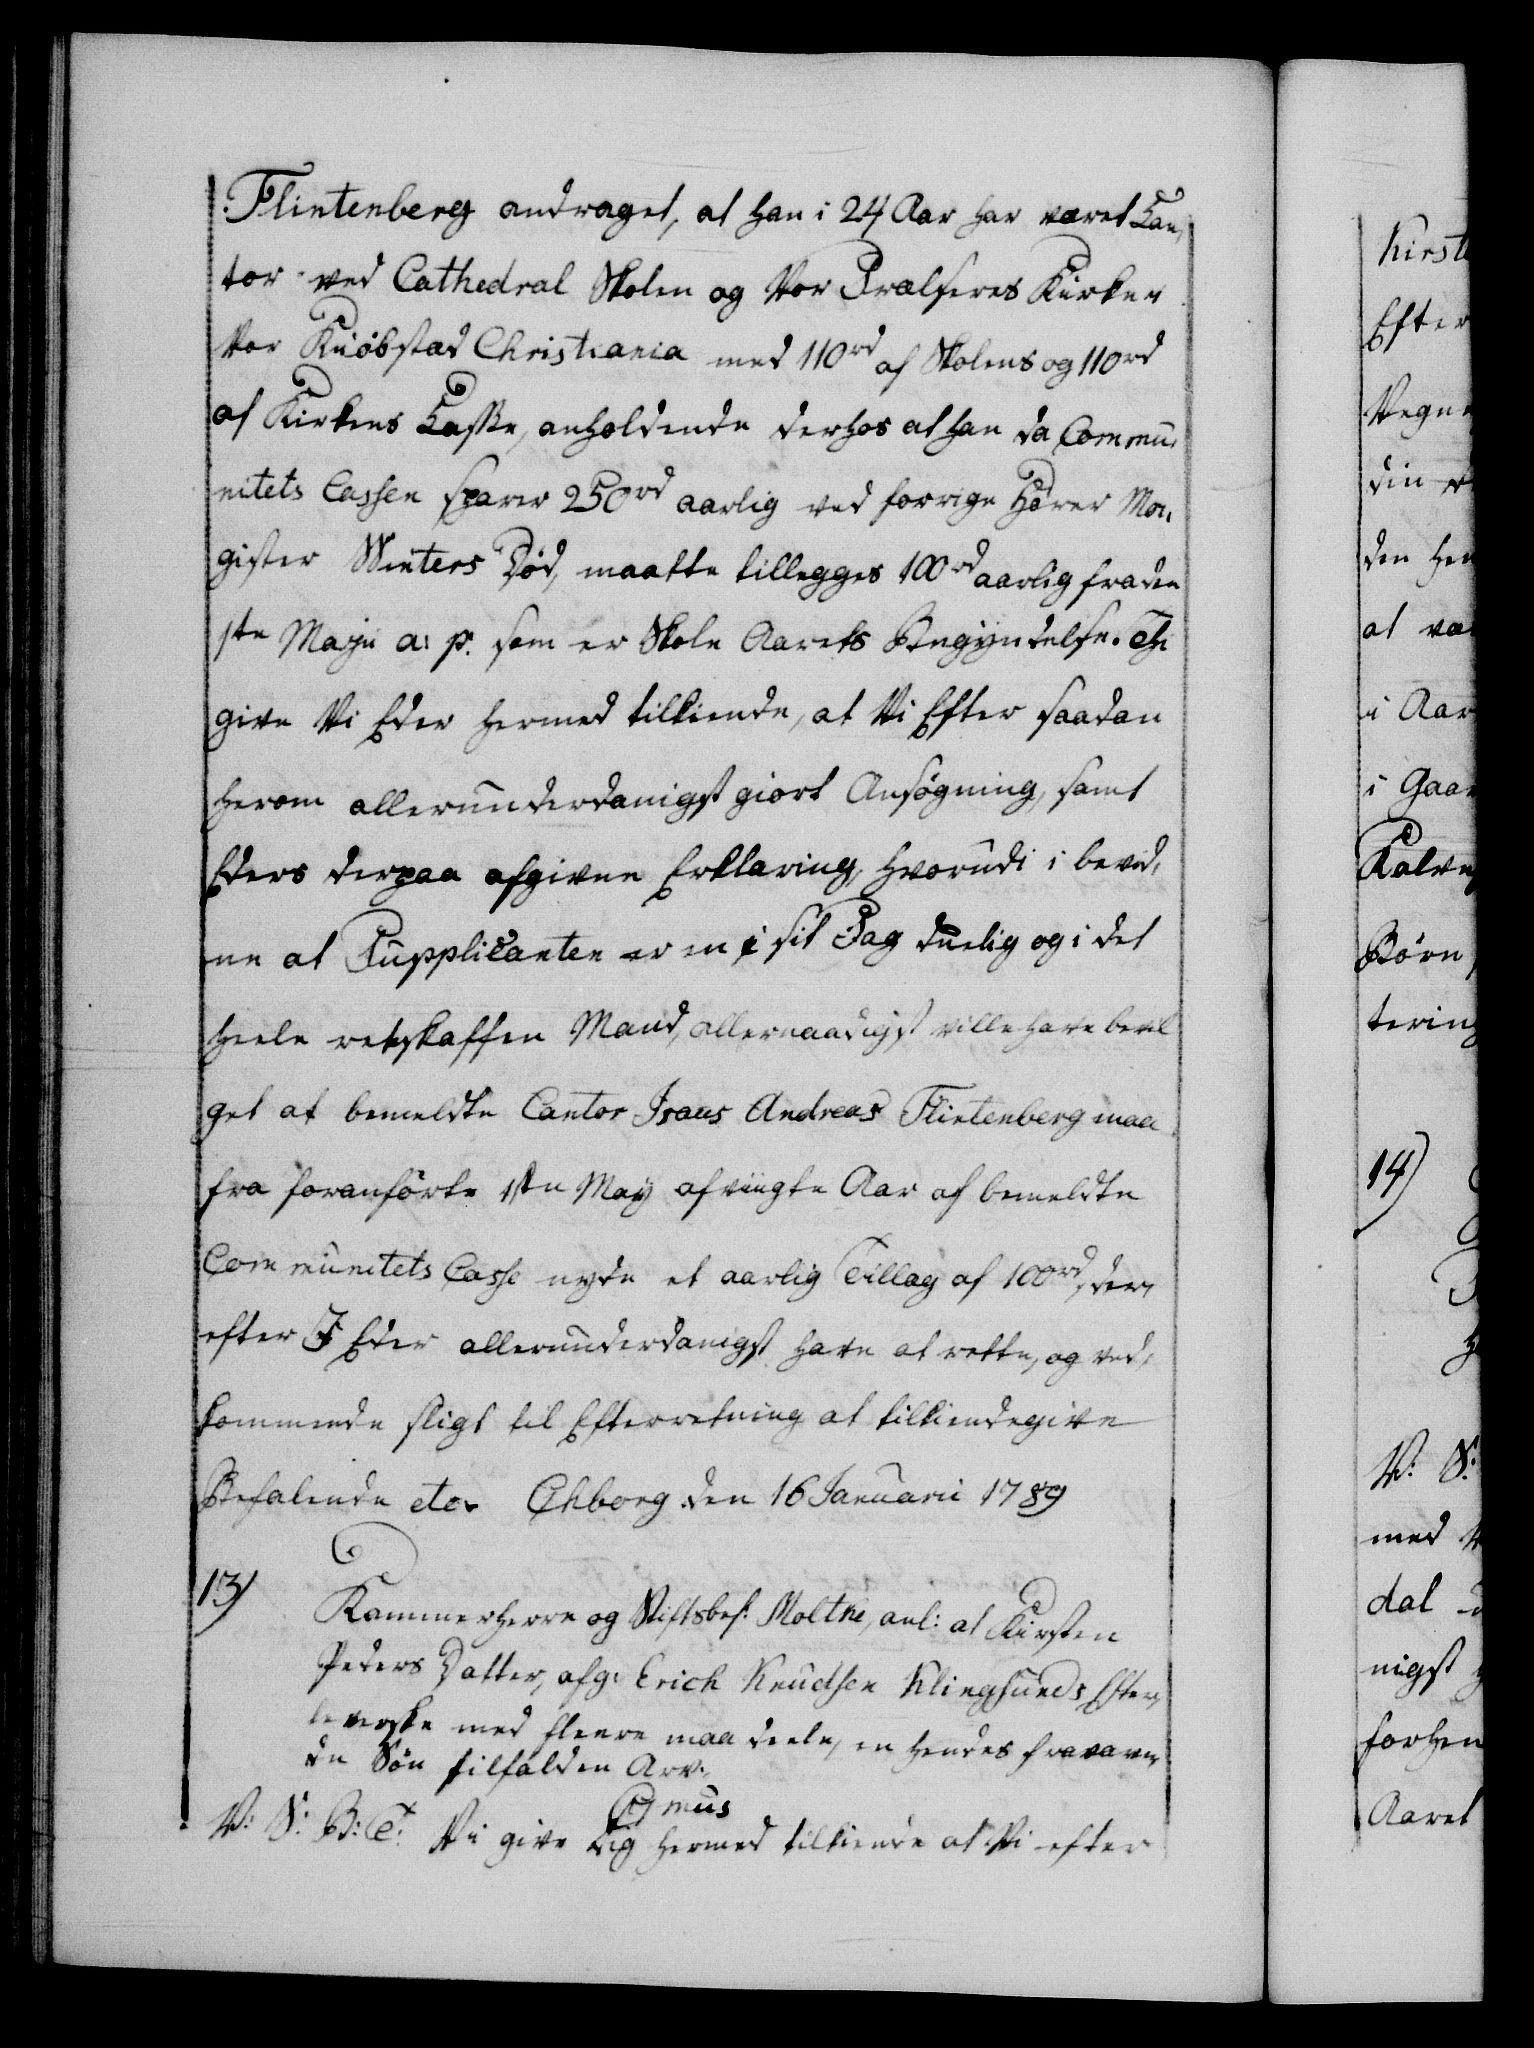 Flintenberg andraget, at han i 24 Aar har været Can,
tor ved Cathedral Skolen og Vor Frælseres Kirke i
Vor Kiöbstad Christiania med 110rd af Skolens og 110rd
af Kirkens Casse, anholdende derhos at han da Commu,
nitets Cassen sparer 250rd aarlig ved forrige Hörer Ma,
gister Winters Död, maatte tillegges 100rd aarlig fra den
1ste Maji a: p. som er Skole Aarets Begyndelse. Thi
give Vi Eder hermed tilkiende, at Vi Efter saadan
herom allerunderdanigst giort Ansögning, samt
Eders derpaa afgivne Erklæring, hvorudi i bevid,
ne at Supplicanten er en i sit Fag duelig og i det
heele retskaffen Mand, allernaadigst ville have bevil
get at bemeldte Cantor Isaus Andreas Flintenberg maa
fra foranförte 1ste May afvigte Aar af bemeldte
Communitets Casse nyde et aarlig Tillæg af 100rd, der,
efter I Eder allerunderdanigst have at rette, og ved,
kommende sligt til Efterretning at tilkiendegive
Befalende etc. Chborg den 16 Januarii 1789
13)
Kammerherre og Stiftsbef: Moltke, anl: at Kirsten
Peders Datter, afg: Erich Knudsen Klingsunds Efter,
leverske med fleere maa deele, en hendes fraværen,
de Sön tilfalden Arv.
C7mus
V: S: B: T: Vi give Dig hermed tilkiende at Vi efter
Kirst
Efter
Vegne
din
den
at
i Aar
i Gaar
Börn
tering
14)
V: S:
med
dal
nigst
forhen
Aaret